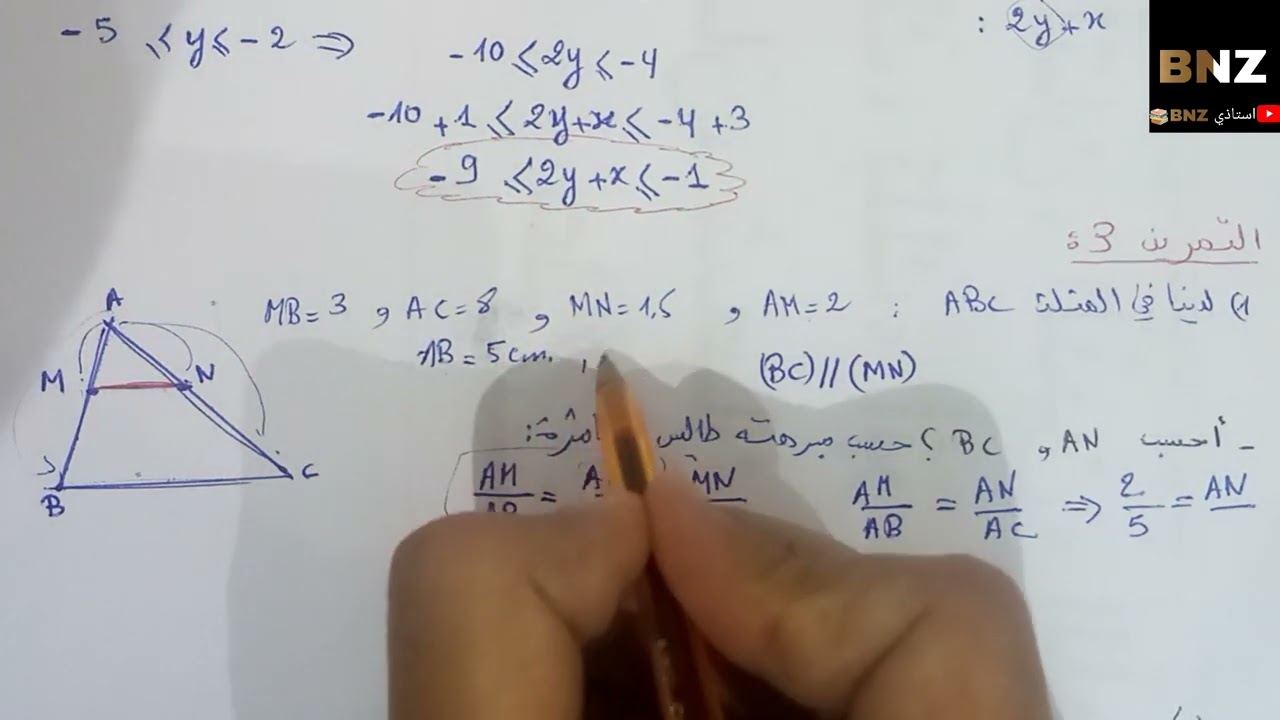 -5 ⩽ y ⩽ -2 ⇒ -10 ⩽ 2y ⩽ -4
: 2y + x
-10 + 1 ⩽ 2y + x ⩽ -4 + 3
-9 ⩽ 2y + x ⩽ -1
BNZ
BNZ استاذي
التمرين 3:
1) لدينا في المثلث ABC : AM = 2 , MN = 1,5 , AC = 8 , MB = 3
AB = 5cm ,
(BC) // (MN)
- أحسب AN و BC ؟ حسب مبرهنة طاليس
AM/AB = MN
AM/AB = AN/AC ⇒ 2/5 = AN
A
M
N
B
C